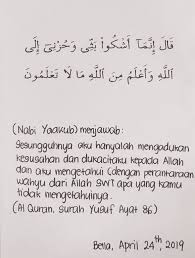 قَالَ إِنَّمَآ أَشْكُوا۟ بَثِّى وَحُزْنِىٓ إِلَى
ٱللَّهِ وَأَعْلَمُ مِنَ ٱللَّهِ مَا لَا تَعْلَمُونَ
(Nabi Yaakub) menjawab:
Sesungguhnya aku hanyalah mengadukan
kesusahan dan dukacitaku kepada Allah
dan aku mengetahui (dengan perantaraan
wahyu dari Allah SWT apa yang kamu
tidak mengetahuinya.
(Al Quran, surah Yusuf Ayat 86)
April 24th, 2019